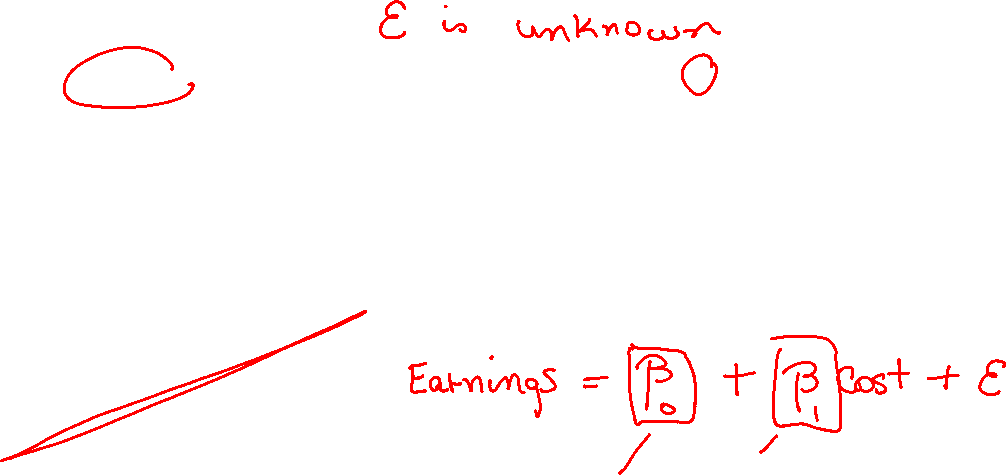 ε is unknown
Earnings = β₀ + β₁ cost + ε